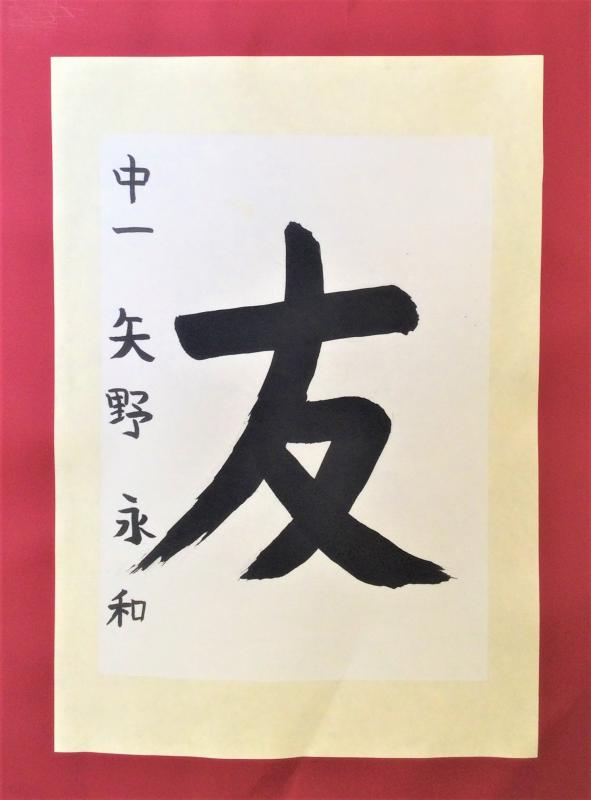 友
中一 矢野 永和